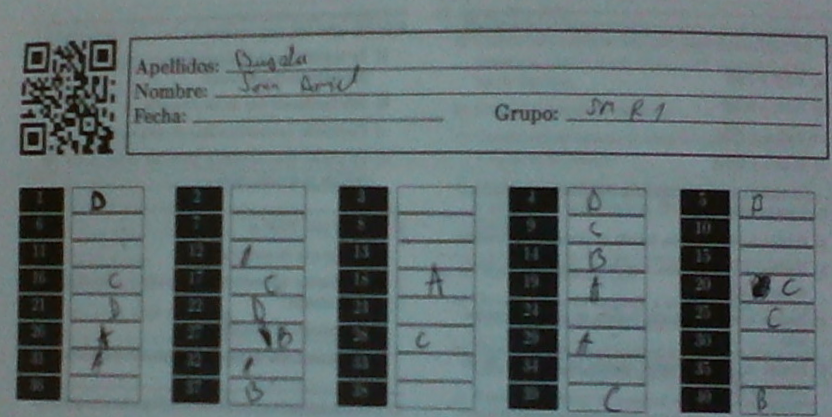 Apellidos: Bugala
Nombre:
Fecha: Grupo: SM R 1
1 D 2 3 4 D 5 B
6 7 8 9 C 10
11 12 13 14 B 15
16 C 17 C 18 A 19 A 20 C
21 D 22 D 23 24 25 C
26 A 27 B 28 C 29 A 30
31 A 32 33 34 35
36 37 B 38 39 C 40 B